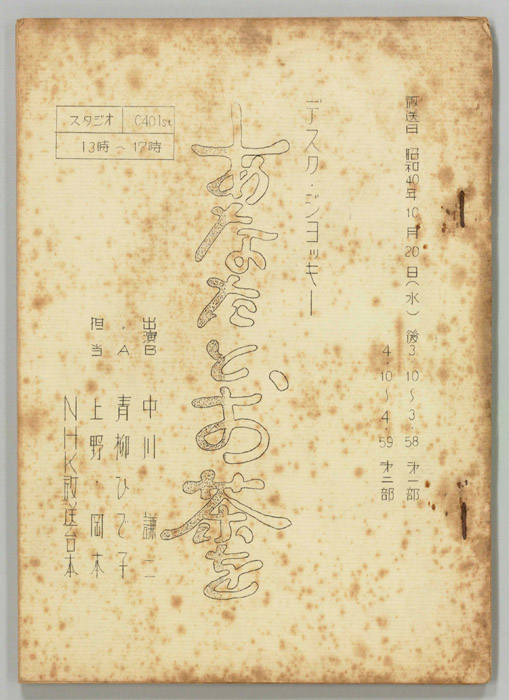 放送日 昭和40年10月20日(水) 後3.10〜3.58 才一部
4.10〜4.59 才二部
デスク・ジョッキー
あなたとお茶を
スタジオ C401st
13時〜17時
出演B 中川 謙二
・A 青柳ひで子
担当 上野・岡本
NHK放送台本